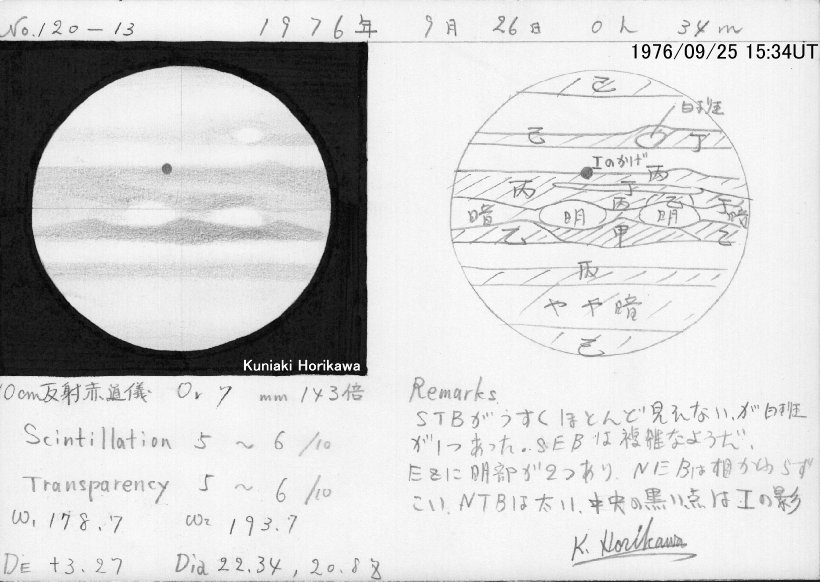 No.120-13 1976年 9月 26日 0h 34m
1976/09/25 15:34UT
己
白斑
己
丁
Iのかげ
丙
丙
丁
丙
乙
暗
明
明
丁
暗
乙
甲
乙
丙
やや暗
己
Kuniaki Horikawa
10cm反射赤道儀 Or 7 mm 143倍
Scintillation 5 ~ 6 /10
Transparency 5 ~ 6 /10
W₁ 178.7 W₂ 193.7
DE +3.27 Dia 22.34, 20.88
Remarks.
STBがうすくほとんど見えない.が白斑
が1つあった.SEBは複雑なようだ.
EZに明部が2つあり.NEBは相かわらず
こい.NTBは太い.中央の黒い点はIの影
K. Horikawa